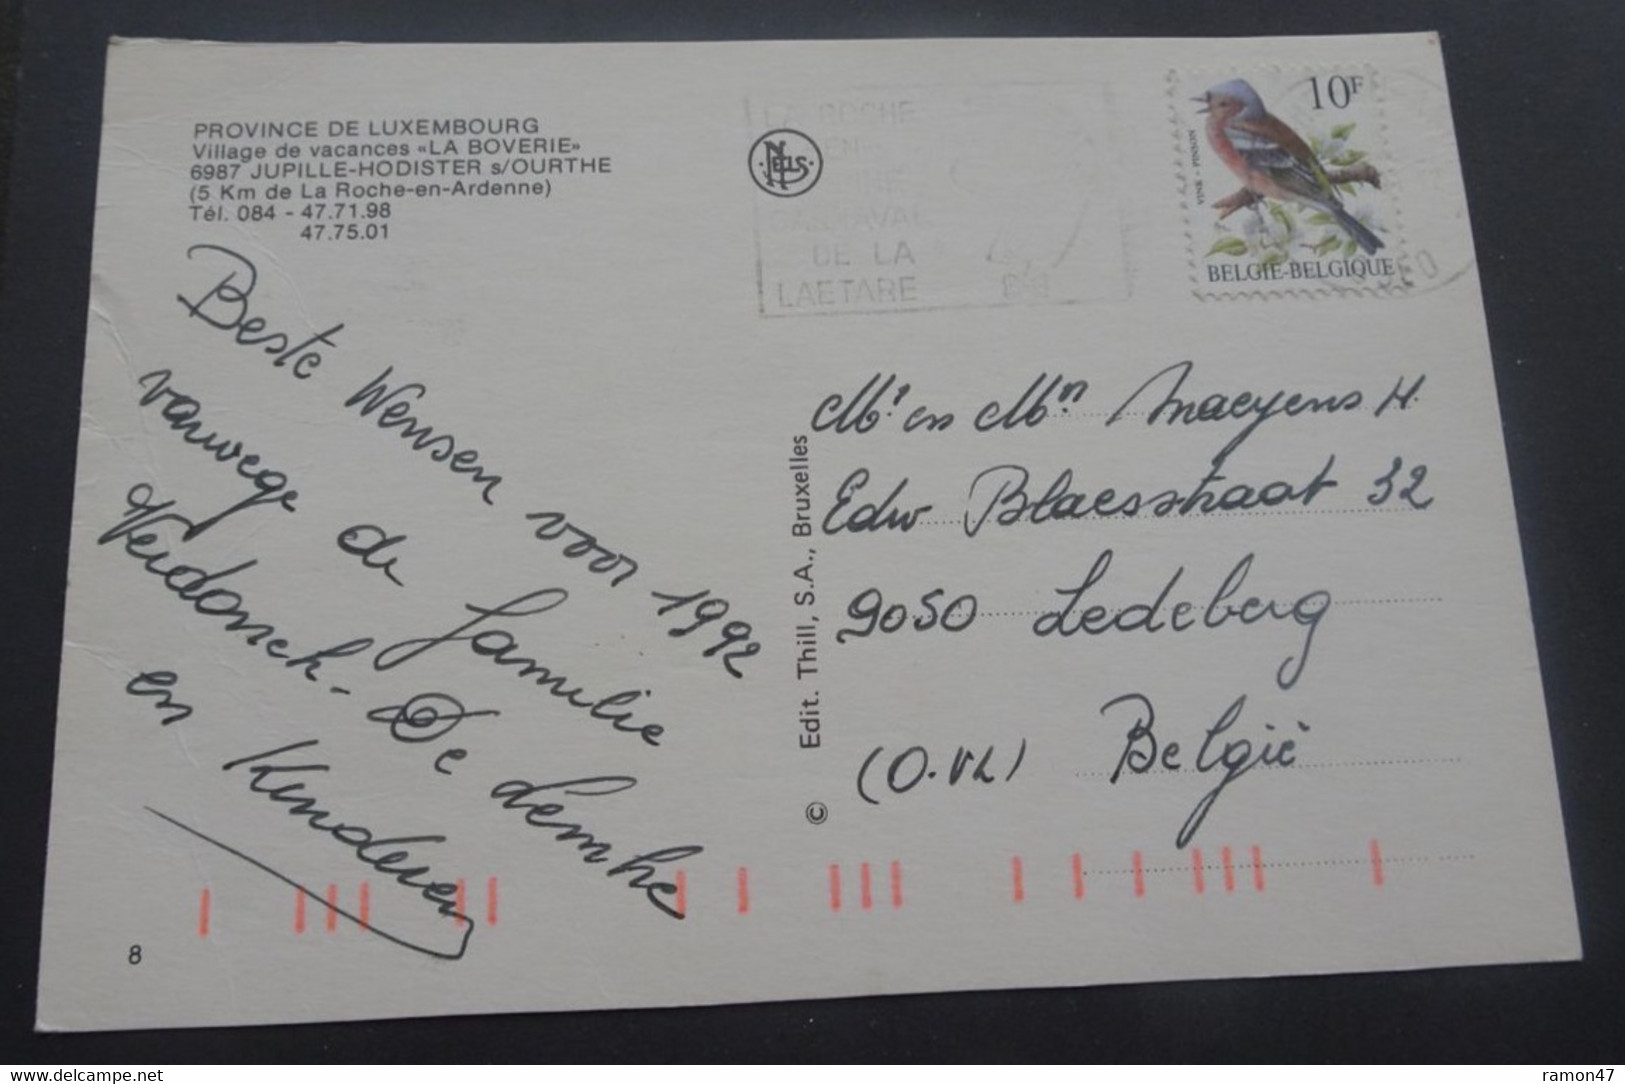 PROVINCE DE LUXEMBOURG
Village de vacances «LA BOVERIE»
6987 JUPILLE-HODISTER s/OURTHE
(5 Km de La Roche-en-Ardenne)
Tél. 084 - 47.71.98
47.75.01
NELS
LA ROCHE
EN-
CARNAVAL
DE LA
LAETARE
10F
VINK - PINSON
BELGIE-BELGIQUE
Beste Wensen voor 1992
vanwege de familie
Verdonck - De Lemhe
en Kinderen
Edit. Thill, S.A., Bruxelles
©
Mr en Mn Maeyens H.
Edw Blaesstraat 32
9050 Ledeberg
(O.VL) België
8
delcampe.net
ramon47